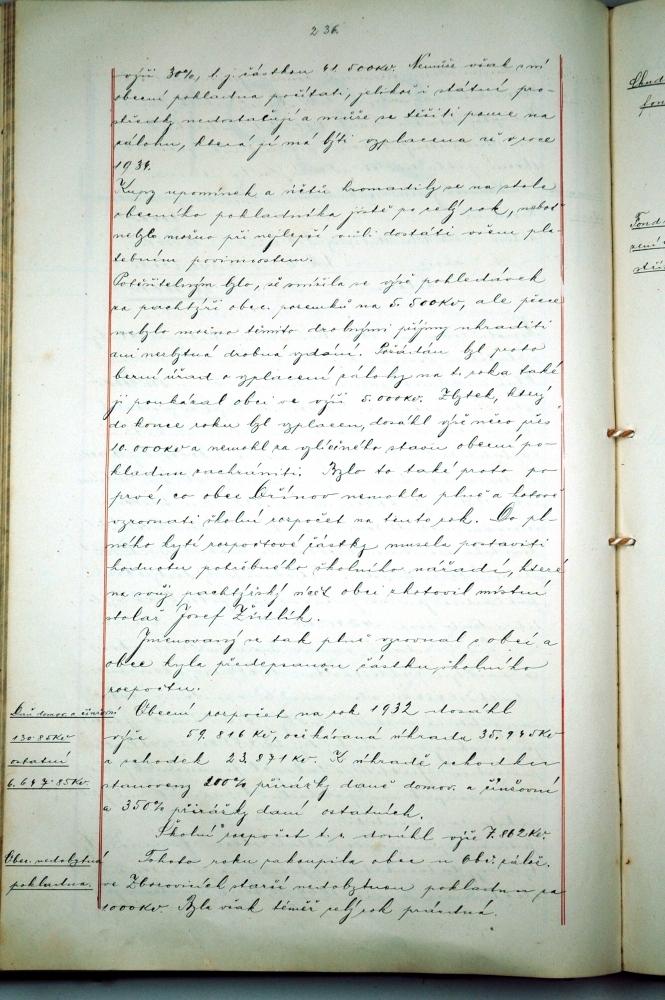 236.
výši 30%, t.j. částkou 41.500Kč. Nemůže však s ní
obecní pokladna počítati, jelikož i státní pro-
středky nedostačují a může se těšiti pouze na
zálohu, která jí má býti vyplacena až v roce
1934.
Kupy upomínek a účtů hromadily se na stole
obecního pokladníka jistě po celý rok, neboť
nebylo možno při nejlepší vůli dostáti všem pla-
tebním povinnostem.
Potěšitelným bylo, že snížila se výše pohledávek
za pachtýři obec. pozemků na 5.500Kč, ale přece
nebylo možno těmito drobnými příjmy uhraditi
ani nezbytná drobná vydání. Požádán byl proto
berní úřad o vyplacení zálohy na t. roka také
ji poukázal obci ve výši 5.000Kč. Zbytek, který
do konce roku byl vyplacen, dosáhl výše něco přes
10.000Kč a nemohl za vylíčeného stavu obecní po-
kladnu zachrániti. Bylo to také proto po
prvé, co obec Břínov nemohla plně a hotově
vyrovnati školní rozpočet na tento rok. Do pl-
ného krytí rozpočtové částky musela postaviti
hodnotu potřebného školního nářadí, které
na svůj pachtýřský účet obci zhotovil místní
stolař Josef
Jmenovaný se tak plně vyrovnal s obcí a
obec kryla předepsanou částku školního
rozpočtu.
Daň domov. a činžovní
130·85Kč
ostatní
6.647·85Kč.
Obecní rozpočet na rok 1932 dosáhl
výše 59.816 Kč, očekávaná úhrada 35.945Kč
a schodek 23.871Kč. K úhradě schodku
stanoveny 200% přirážky daně domov. a činžovní
a 350% přirážky daní ostatních.
Školní rozpočet t.r. dosáhl výše 7.862Kč.
Obec. nedobytná
pokladna.
Tohoto roku zakoupila obec u Obč. zálož.
ve Zborovicích starší nedobytnou pokladnu za
1000Kč. Byla však téměř celý rok prázdná.